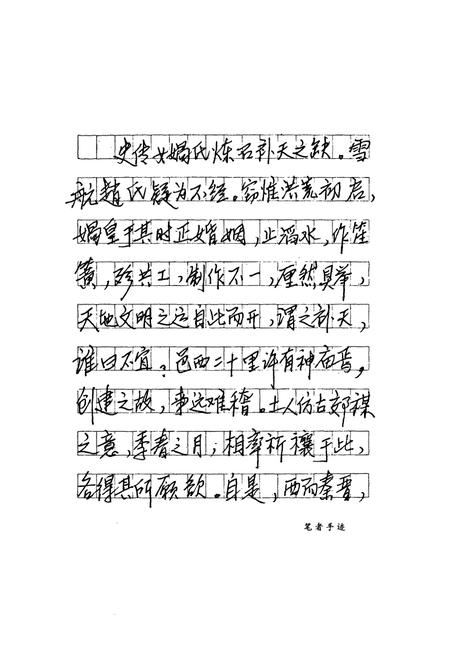 史传女娲氏炼石补天之缺。雪
航赵氏疑为不经。窃惟洪荒初启，
娲皇于其时正婚姻，止滔水，作笙
簧，殄共工，制作不一，厘然具举，
天地文明之运自此而开，谓之补天，
谁曰不宜？邑西二十里许有神庙焉，
创建之故，事远难稽。土人仿古郊禖
之意，季春之月，相率祈禳于此，
各得其所愿欲。自是，西而秦晋，
笔者手迹